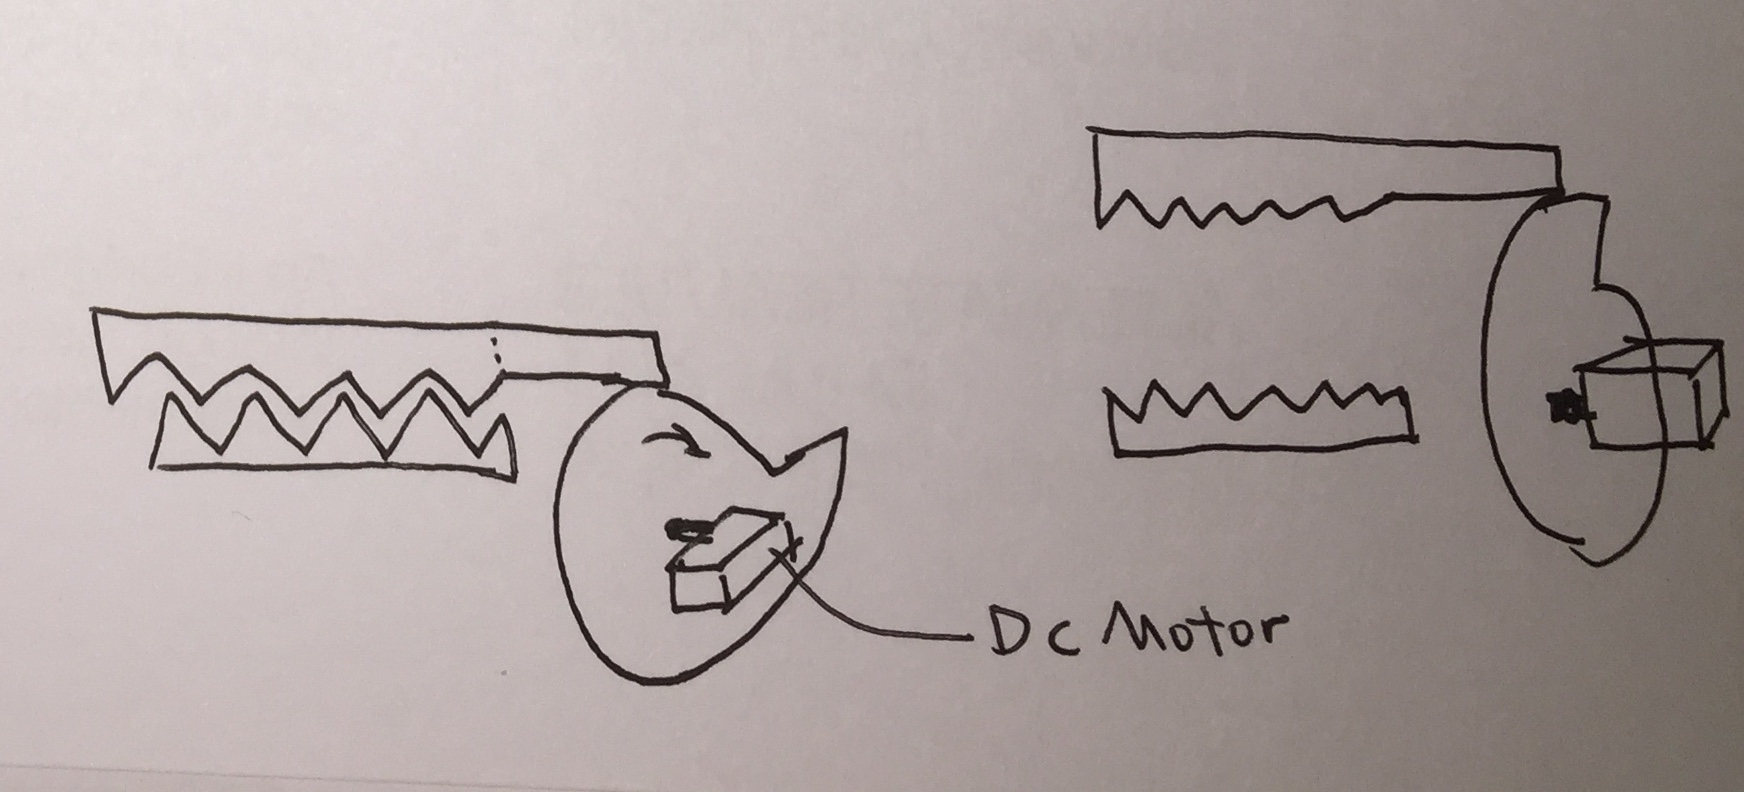 Dc Motor